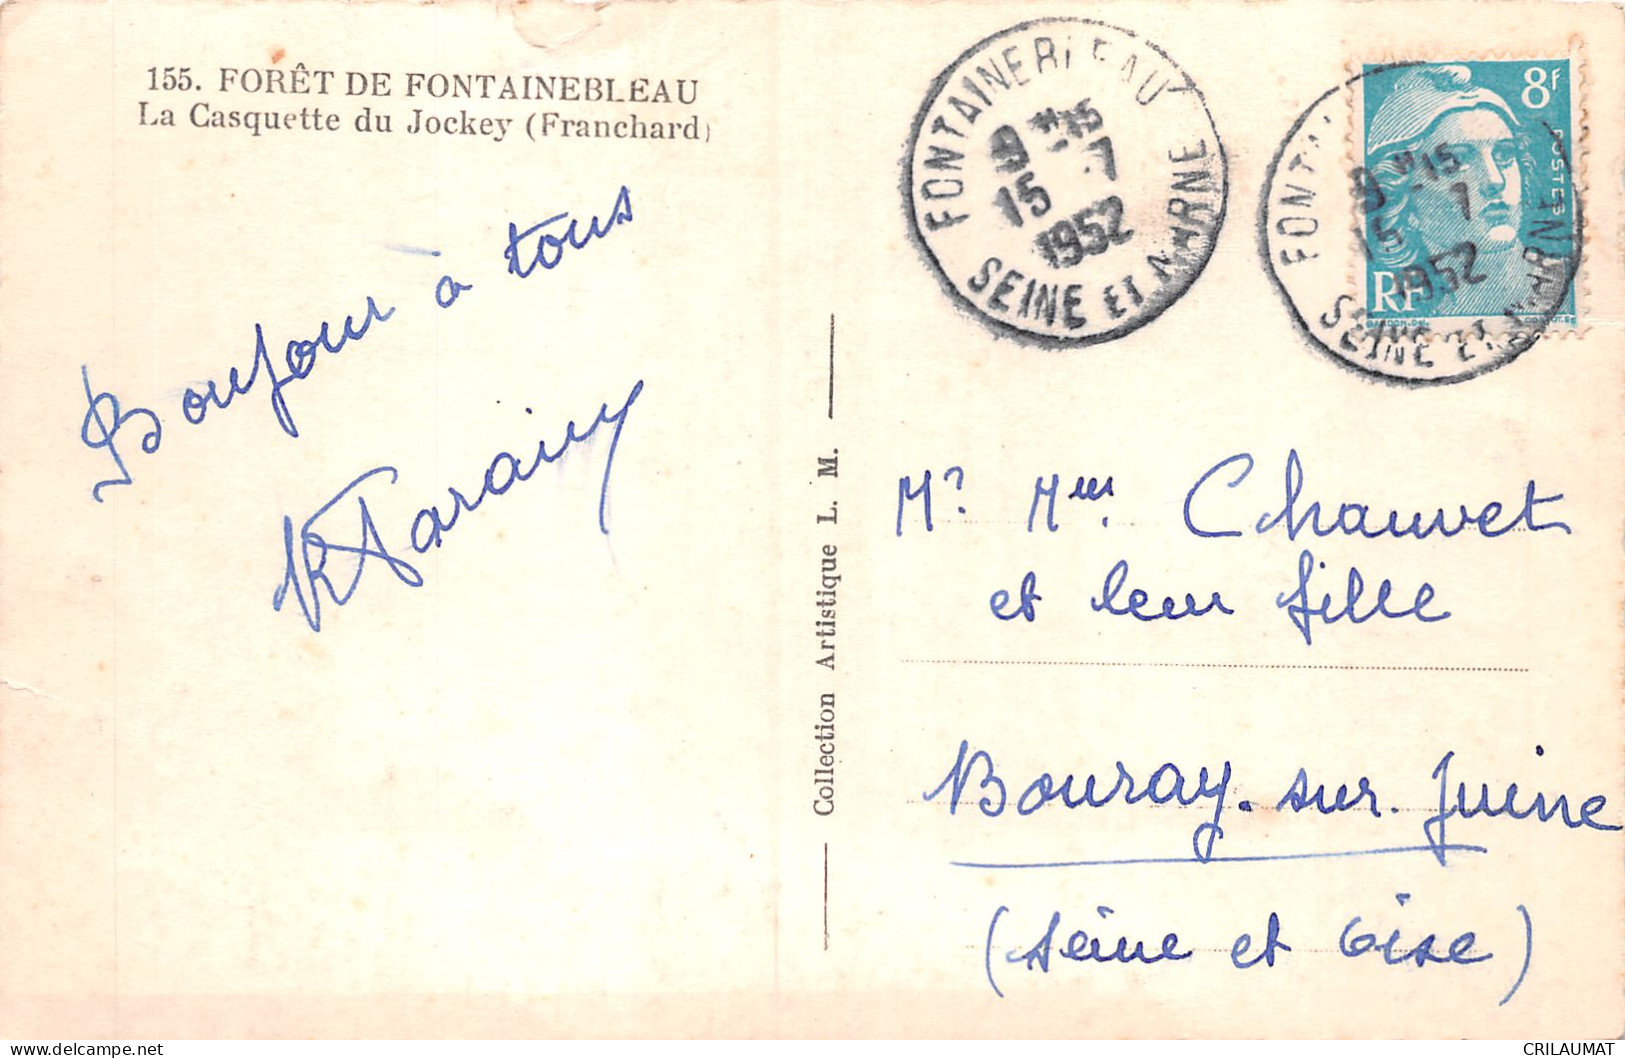 155. FORÊT DE FONTAINEBLEAU
La Casquette du Jockey (Franchard)
Bonjour à tous
Collection Artistique L. M.
FONTAINEBLEAU
9 H 15
15 - 7
1952
SEINE ET MARNE
8F
POSTES
RF
GANDON.DEL
9 H 15
15 - 7
1952
SEINE ET MARNE
Mr. Mme. Chauvet
et leur fille
Bouray-sur-Juine
(Seine et Oise)
CRILAUMAT